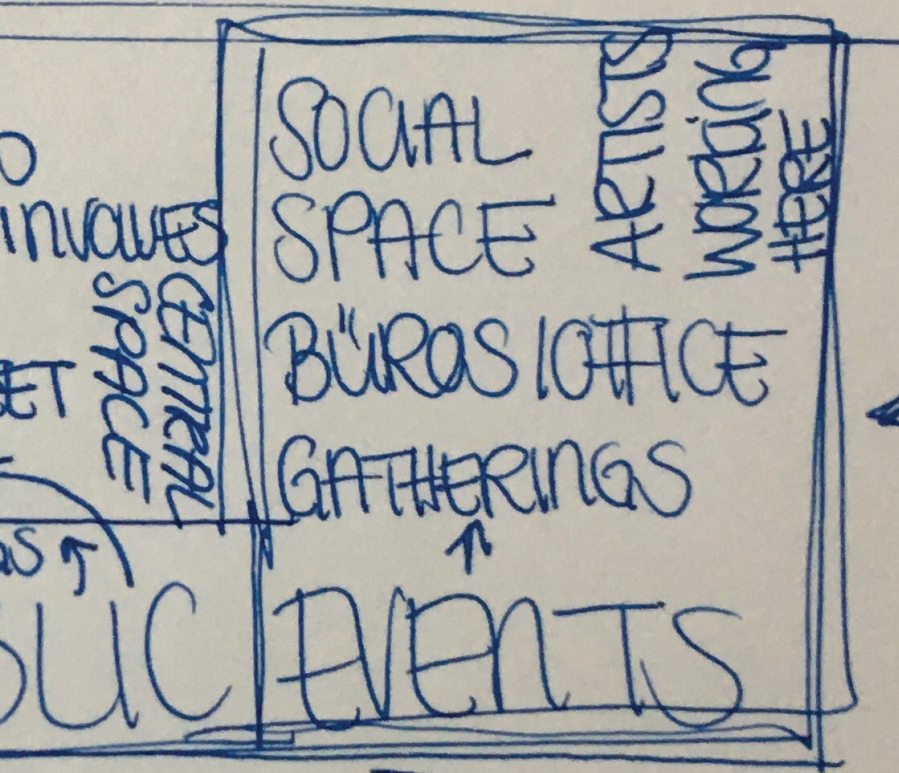 INVOLVES
CENTRAL
SPACE
SOCIAL
SPACE
BÜROS/OFFICE
GATHERINGS
EVENTS
ARTISTS
WORKING
HERE